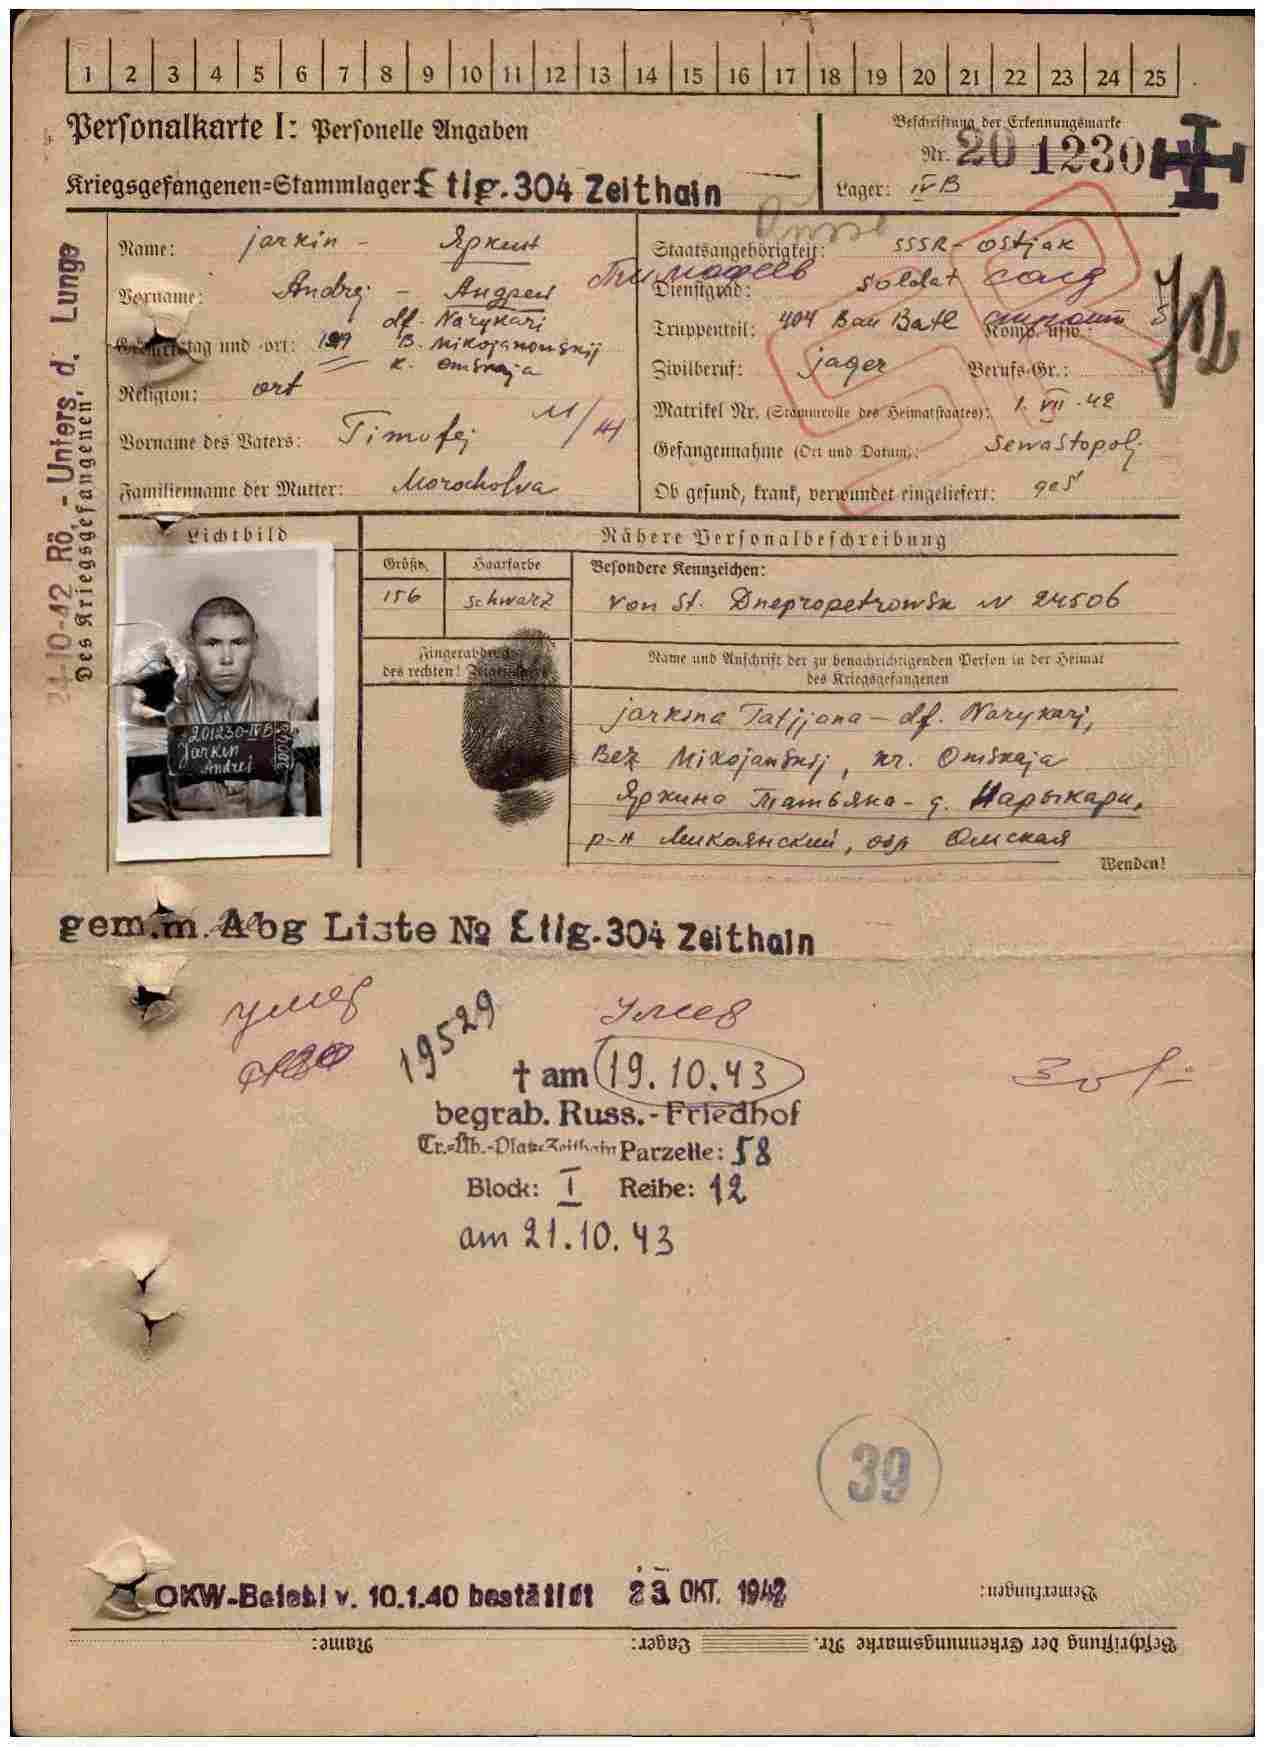 1 2 3 4 5 6 7 8 9 10 11 12 13 14 15 16 17 18 19 20 21 22 23 24 25
Personalkarte I: Personelle Angaben
Beschriftung der Erkennungsmarke
Nr. 201230
Kriegsgefangenen-Stammlager: Ͼtlg. 304 Zeithain
Lager: IV B
24-10-42 Rö.-Unters. d. Lunge
Des Kriegsgefangenen
Name: jarkin - Яркин
Vorname: Andrej - Андрей Тимофеев
Geburtstag und -ort: df. Narykari
B. Mikojanowskij
K. Omskaja
Religion: ort
Vorname des Vaters: Timofej
Familienname der Mutter:
Staatsangehörigkeit: SSSR - Ostjak
Dienstgrad: Soldat солд
Truppenteil: 404 Bau Batl Komp. usw.:
Zivilberuf: jager Berufs-Gr.:
Matrikel Nr. (Stammrolle des Heimatstaates): 1. VII. 42
Gefangennahme (Ort und Datum): Sewastopolj
Ob gesund, krank, verwundet eingeliefert: ges
Lichtbild
Nähere Personalbeschreibung
Größe Haarfarbe Besondere Kennzeichen:
156 schwarz von St. Dnepropetrowsk N 24506
Fingerabdruck
des rechten! Zeigefingers
Name und Anschrift der zu benachrichtigenden Person in der Heimat
des Kriegsgefangenen
201230-IVB
Jarkin
Andrej
jarkina Tatjjana - df. Narykarj,
Bez Mikojanskij, kr. Omskaja
Яркина Татьяна - д. Нарыкари,
р-н Микоянский, обл Омская
Wenden!
gem. m. Abg Liste № Ͼtlg. 304 Zeithain
умер Умер
19529
† am 19.10.43
begrab. Russ.-Friedhof
Tr.-Üb.-Platz Zeithain Parzelle: 58
Block: I Reihe: 12
am 21.10.43
39
OKW-Befehl v. 10.1.40 bestätigt 23. OKT. 1942
Bemerkungen:
Beschriftung der Erkennungsmarke Nr. Lager: Name: